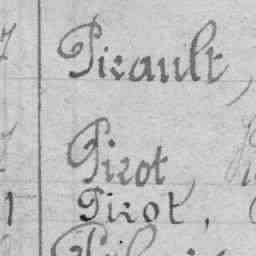 Pirault,
Pirot,
Pirot,